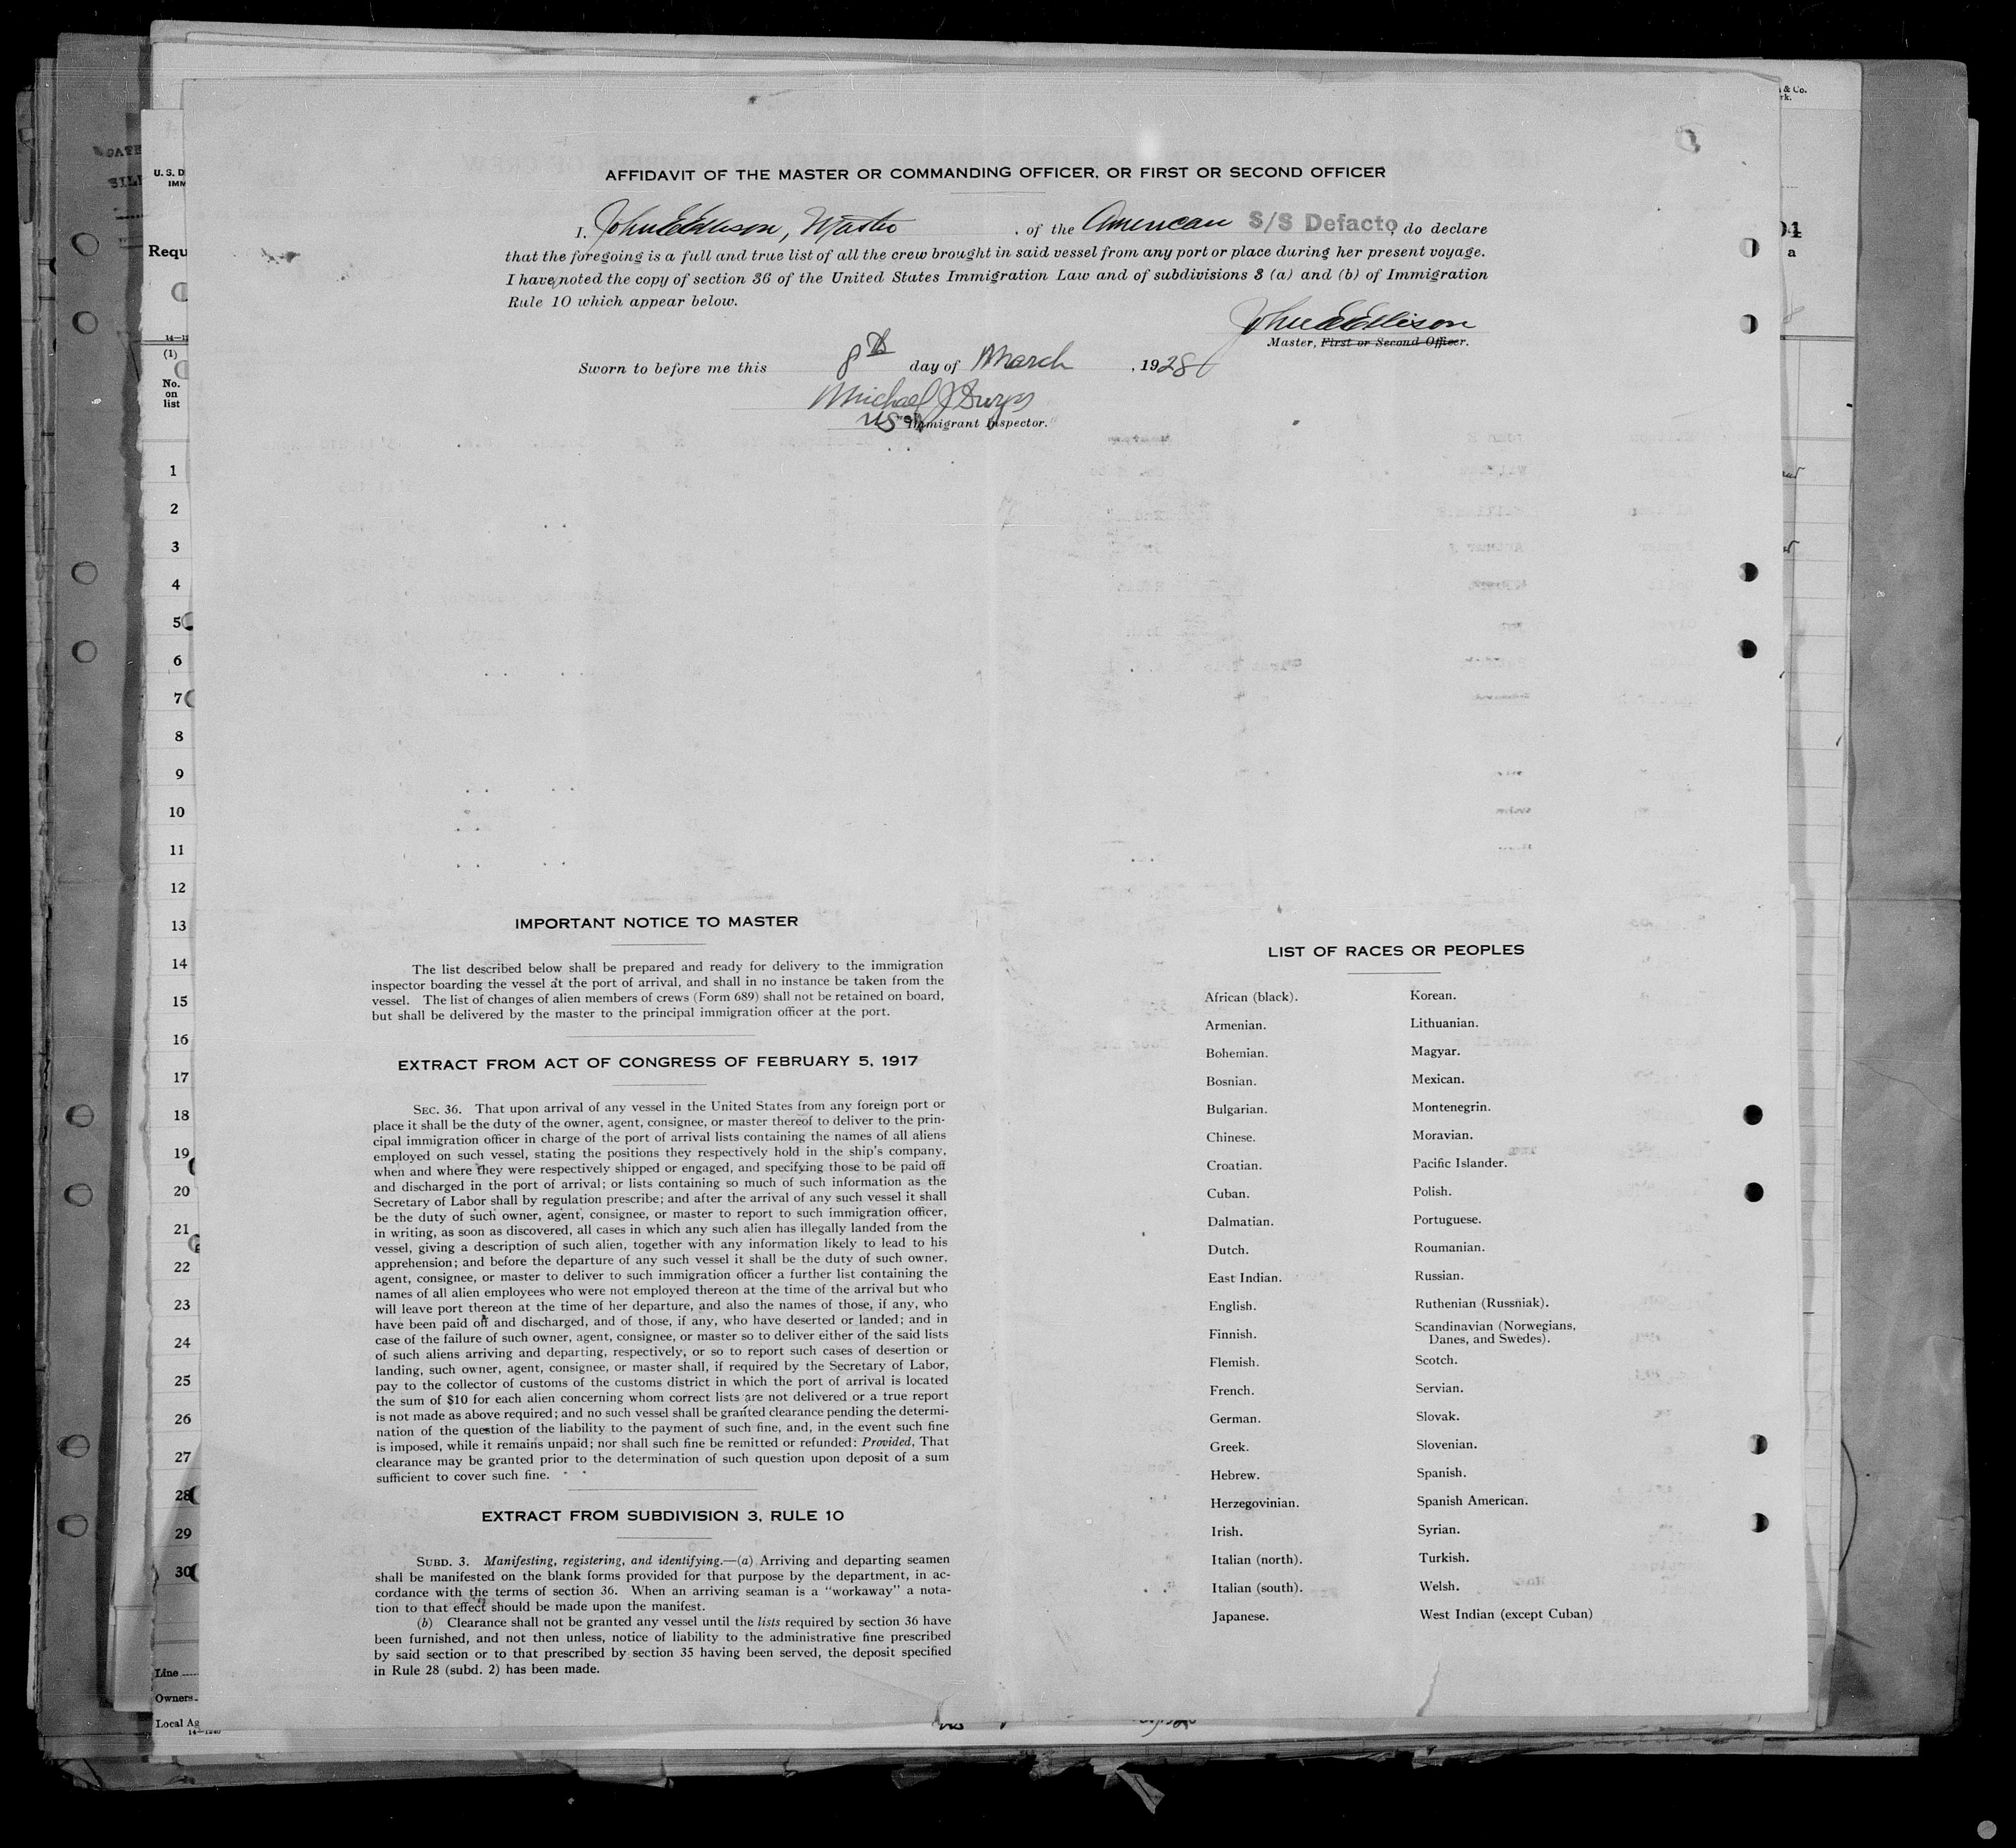 AFFIDAVIT OF THE MASTER OR COMMANDING OFFICER, OR FIRST OR SECOND OFFICER
I, John E Ellison, Master, of the American S/S Defacto, do declare
that the foregoing is a full and true list of all the crew brought in said vessel from any port or place during her present voyage.
I have noted the copy of section 36 of the United States Immigration Law and of subdivisions 3 (a) and (b) of Immigration
Rule 10 which appear below.
John E Ellison
Master, First or Second Officer.
Sworn to before me this 8th day of March, 1928
Michael J
US Immigrant Inspector.
IMPORTANT NOTICE TO MASTER
The list described below shall be prepared and ready for delivery to the immigration
inspector boarding the vessel at the port of arrival, and shall in no instance be taken from the
vessel. The list of changes of alien members of crews (Form 689) shall not be retained on board,
but shall be delivered by the master to the principal immigration officer at the port.
EXTRACT FROM ACT OF CONGRESS OF FEBRUARY 5, 1917
SEC. 36. That upon arrival of any vessel in the United States from any foreign port or
place it shall be the duty of the owner, agent, consignee, or master thereof to deliver to the prin-
cipal immigration officer in charge of the port of arrival lists containing the names of all aliens
employed on such vessel, stating the positions they respectively hold in the ship's company,
when and where they were respectively shipped or engaged, and specifying those to be paid off
and discharged in the port of arrival; or lists containing so much of such information as the
Secretary of Labor shall by regulation prescribe; and after the arrival of any such vessel it shall
be the duty of such owner, agent, consignee, or master to report to such immigration officer,
in writing, as soon as discovered, all cases in which any such alien has illegally landed from the
vessel, giving a description of such alien, together with any information likely to lead to his
apprehension; and before the departure of any such vessel it shall be the duty of such owner,
agent, consignee, or master to deliver to such immigration officer a further list containing the
names of all alien employees who were not employed thereon at the time of the arrival but who
will leave port thereon at the time of her departure, and also the names of those, if any, who
have been paid off and discharged, and of those, if any, who have deserted or landed; and in
case of the failure of such owner, agent, consignee, or master so to deliver either of the said lists
of such aliens arriving and departing, respectively, or so to report such cases of desertion or
landing, such owner, agent, consignee, or master shall, if required by the Secretary of Labor,
pay to the collector of customs of the customs district in which the port of arrival is located
the sum of $10 for each alien concerning whom correct lists are not delivered or a true report
is not made as above required; and no such vessel shall be granted clearance pending the determi-
nation of the question of the liability to the payment of such fine, and, in the event such fine
is imposed, while it remains unpaid; nor shall such fine be remitted or refunded: Provided, That
clearance may be granted prior to the determination of such question upon deposit of a sum
sufficient to cover such fine.
EXTRACT FROM SUBDIVISION 3, RULE 10
SUBD. 3. Manifesting, registering, and identifying.—(a) Arriving and departing seamen
shall be manifested on the blank forms provided for that purpose by the department, in ac-
cordance with the terms of section 36. When an arriving seaman is a "workaway" a nota-
tion to that effect should be made upon the manifest.
(b) Clearance shall not be granted any vessel until the lists required by section 36 have
been furnished, and not then unless, notice of liability to the administrative fine prescribed
by said section or to that prescribed by section 35 having been served, the deposit specified
in Rule 28 (subd. 2) has been made.
LIST OF RACES OR PEOPLES
African (black). Korean.
Armenian. Lithuanian.
Bohemian. Magyar.
Bosnian. Mexican.
Bulgarian. Montenegrin.
Chinese. Moravian.
Croatian. Pacific Islander.
Cuban. Polish.
Dalmatian. Portuguese.
Dutch. Roumanian.
East Indian. Russian.
English. Ruthenian (Russniak).
Finnish. Scandinavian (Norwegians,
Danes, and Swedes).
Flemish. Scotch.
French. Servian.
German. Slovak.
Greek. Slovenian.
Hebrew. Spanish.
Herzegovinian. Spanish American.
Irish. Syrian.
Italian (north). Turkish.
Italian (south). Welsh.
Japanese. West Indian (except Cuban)
Requ
(1)
No.
on
list
1
2
3
4
5
6
7
8
9
10
11
12
13
14
15
16
17
18
19
20
21
22
23
24
25
26
27
28
29
30
Line
Owners
Local Ag
& Co.